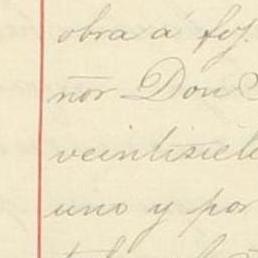 obra á foj.
ñor Don
veintisiete
uno y por